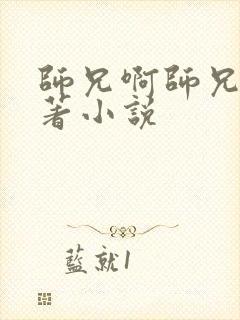 師兄啊師兄
著小說
藍就1